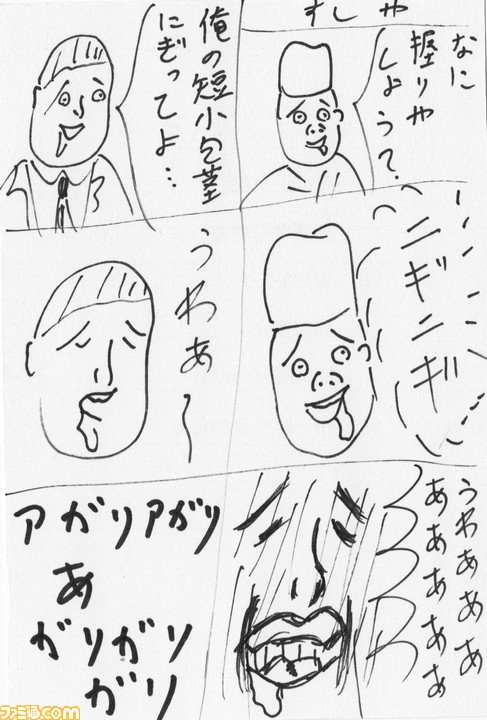 すしや
なに
握りや
しょう？
俺の短小包茎
にぎってよ…
ニギニギ
うわぁ～
うわぁぁぁぁ
あぁぁぁぁぁ
アガリアガリ
あ
がりがり
ガリ
ファミ通.com